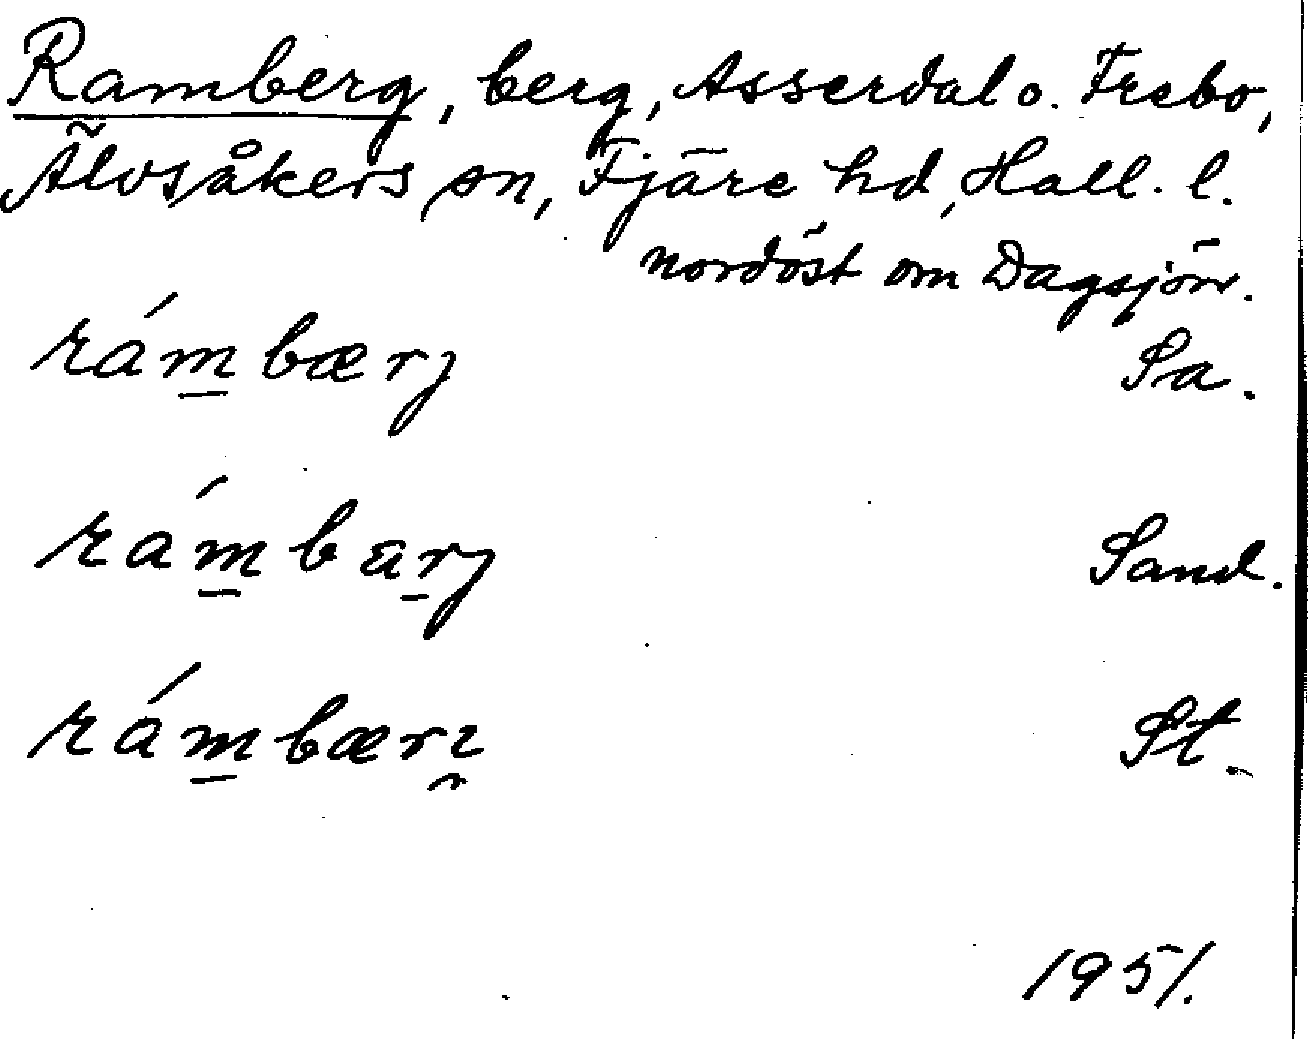 Ramberg, berg, Asserdal o. Frebo,
Älvsåkers sn, Fjäre hd, Hall. l.
nordöst om Dagsjön.
rám̲bærj Sa.
rám̲bar̲j Sand.
rám̲bærɪ̯ St.
1951.